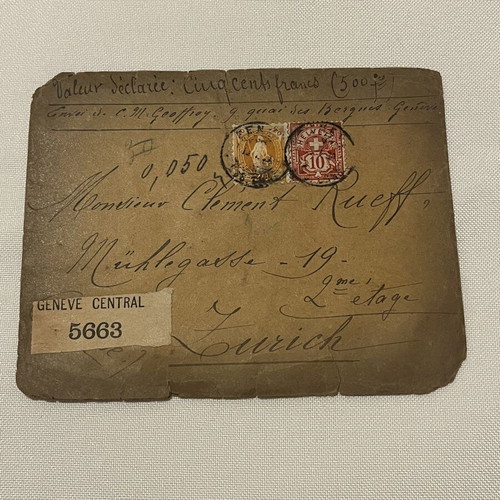 Valeur déclarée: Cinq cents francs (500.-)
Envoi de C. M. Geoffroy. 9 quai des Bergues. Genève
0,050
HELVETIA
10
Monsieur Clement Rueff,
Mühlegasse - 19 -
2me étage
GENÈVE CENTRAL
5663
Zurich